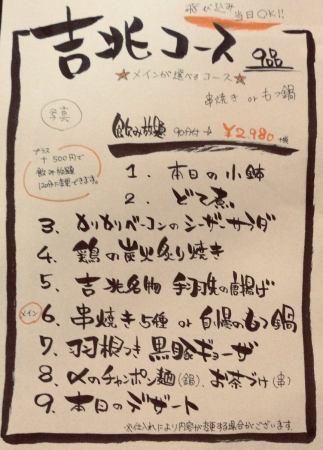 飛び込み
当日OK!!
吉兆コース 9品
★メインが選べるコース★
串焼き or もつ鍋
写真
飲み放題 90分付→ ¥2980
プラス
+500円で
飲み放題
120分に変更できます。
1. 本日の小鉢
2. どて煮
3. カリカリベーコンのシーザーサラダ
4. 鶏の炭火炙り焼き
5. 吉兆名物 手羽先の唐揚げ
メイン
6. 串焼き5種 or 自慢のもつ鍋
7. 羽根つき黒豚ギョーザ
8. 〆のチャンポン麺(鍋)、お茶づけ(串)
9. 本日のデザート
※仕入れにより内容が変更する場合がございます。